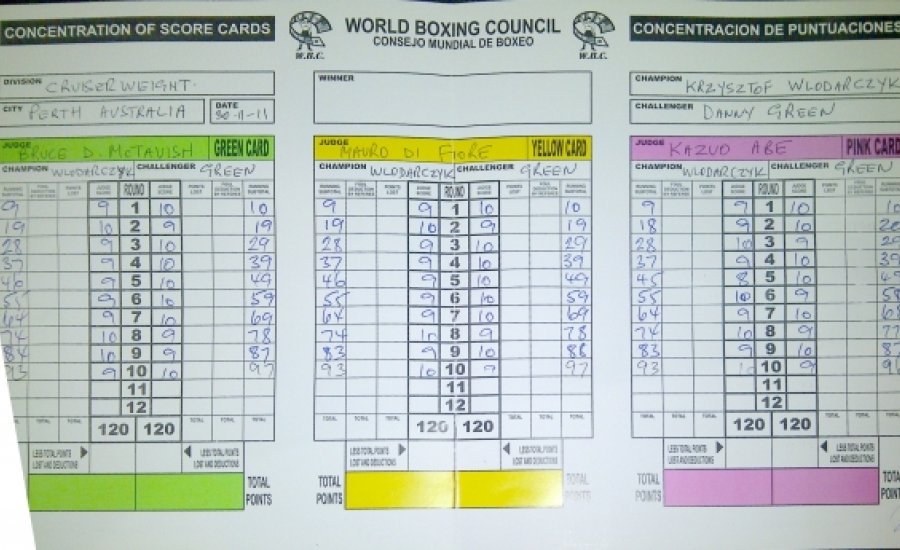 CONCENTRATION OF SCORE CARDS
WORLD BOXING COUNCIL
CONSEJO MUNDIAL DE BOXEO
W.B.C.
W.B.C.
CONCENTRACION DE PUNTUACIONES
DIVISION CRUISERWEIGHT.
CITY PERTH AUSTRALIA DATE 30-11-11
WINNER
CHAMPION KRZYSZTOF WLODARCZYK
CHALLENGER DANNY GREEN
JUDGE BRUCE D. McTAVISH GREEN CARD
CHAMPION WLODARCZYK CHALLENGER GREEN
RUNNING SUBTOTAL FOUL DEDUCTION BY REFEREE POINTS LOST JUDGE SCORE ROUND JUDGE SCORE POINTS LOST FOUL DEDUCTION BY REFEREE RUNNING SUBTOTAL
9 9 1 10 10
19 10 2 9 19
28 9 3 10 29
37 9 4 10 39
46 9 5 10 49
55 9 6 10 59
64 9 7 10 69
74 10 8 9 78
84 10 9 9 87
93 9 10 10 97
11
12
TOTAL TOTAL 120 120 TOTAL TOTAL TOTAL
LESS TOTAL POINTS LOST AND DEDUCTIONS
LESS TOTAL POINTS LOST AND DEDUCTIONS
TOTAL POINTS
JUDGE MAURO DI FIORE YELLOW CARD
CHAMPION WLODARCZYK CHALLENGER GREEN
RUNNING SUBTOTAL FOUL DEDUCTION BY REFEREE POINTS LOST JUDGE SCORE ROUND JUDGE SCORE POINTS LOST FOUL DEDUCTION BY REFEREE RUNNING SUBTOTAL
9 9 1 10 10
19 10 2 9 19
28 9 3 10 29
37 9 4 10 39
46 9 5 10 49
55 9 6 10 59
64 9 7 10 69
74 10 8 9 78
83 9 9 10 88
93 10 10 9 97
11
12
TOTAL TOTAL TOTAL 120 120 TOTAL TOTAL TOTAL
LESS TOTAL POINTS LOST AND DEDUCTIONS
LESS TOTAL POINTS LOST AND DEDUCTIONS
TOTAL POINTS
TOTAL POINTS
JUDGE KAZUO ABE PINK CARD
CHAMPION WLODARCZYK CHALLENGER GREEN
RUNNING SUBTOTAL FOUL DEDUCTION BY REFEREE POINTS LOST JUDGE SCORE ROUND JUDGE SCORE POINTS LOST FOUL DEDUCTION BY REFEREE
9 9 1 10
18 9 2 10
28 10 3 9
37 9 4 10
45 8 5 10
55 10 6 9
64 9 7 10
74 10 8 9
83 9 9 10
93 10 10 9
11
12
TOTAL TOTAL TOTAL 120 120 TOTAL TOTAL
LESS TOTAL POINTS LOST AND DEDUCTIONS
LESS TOTAL POINTS LOST AND DEDUCTIONS
TOTAL POINTS